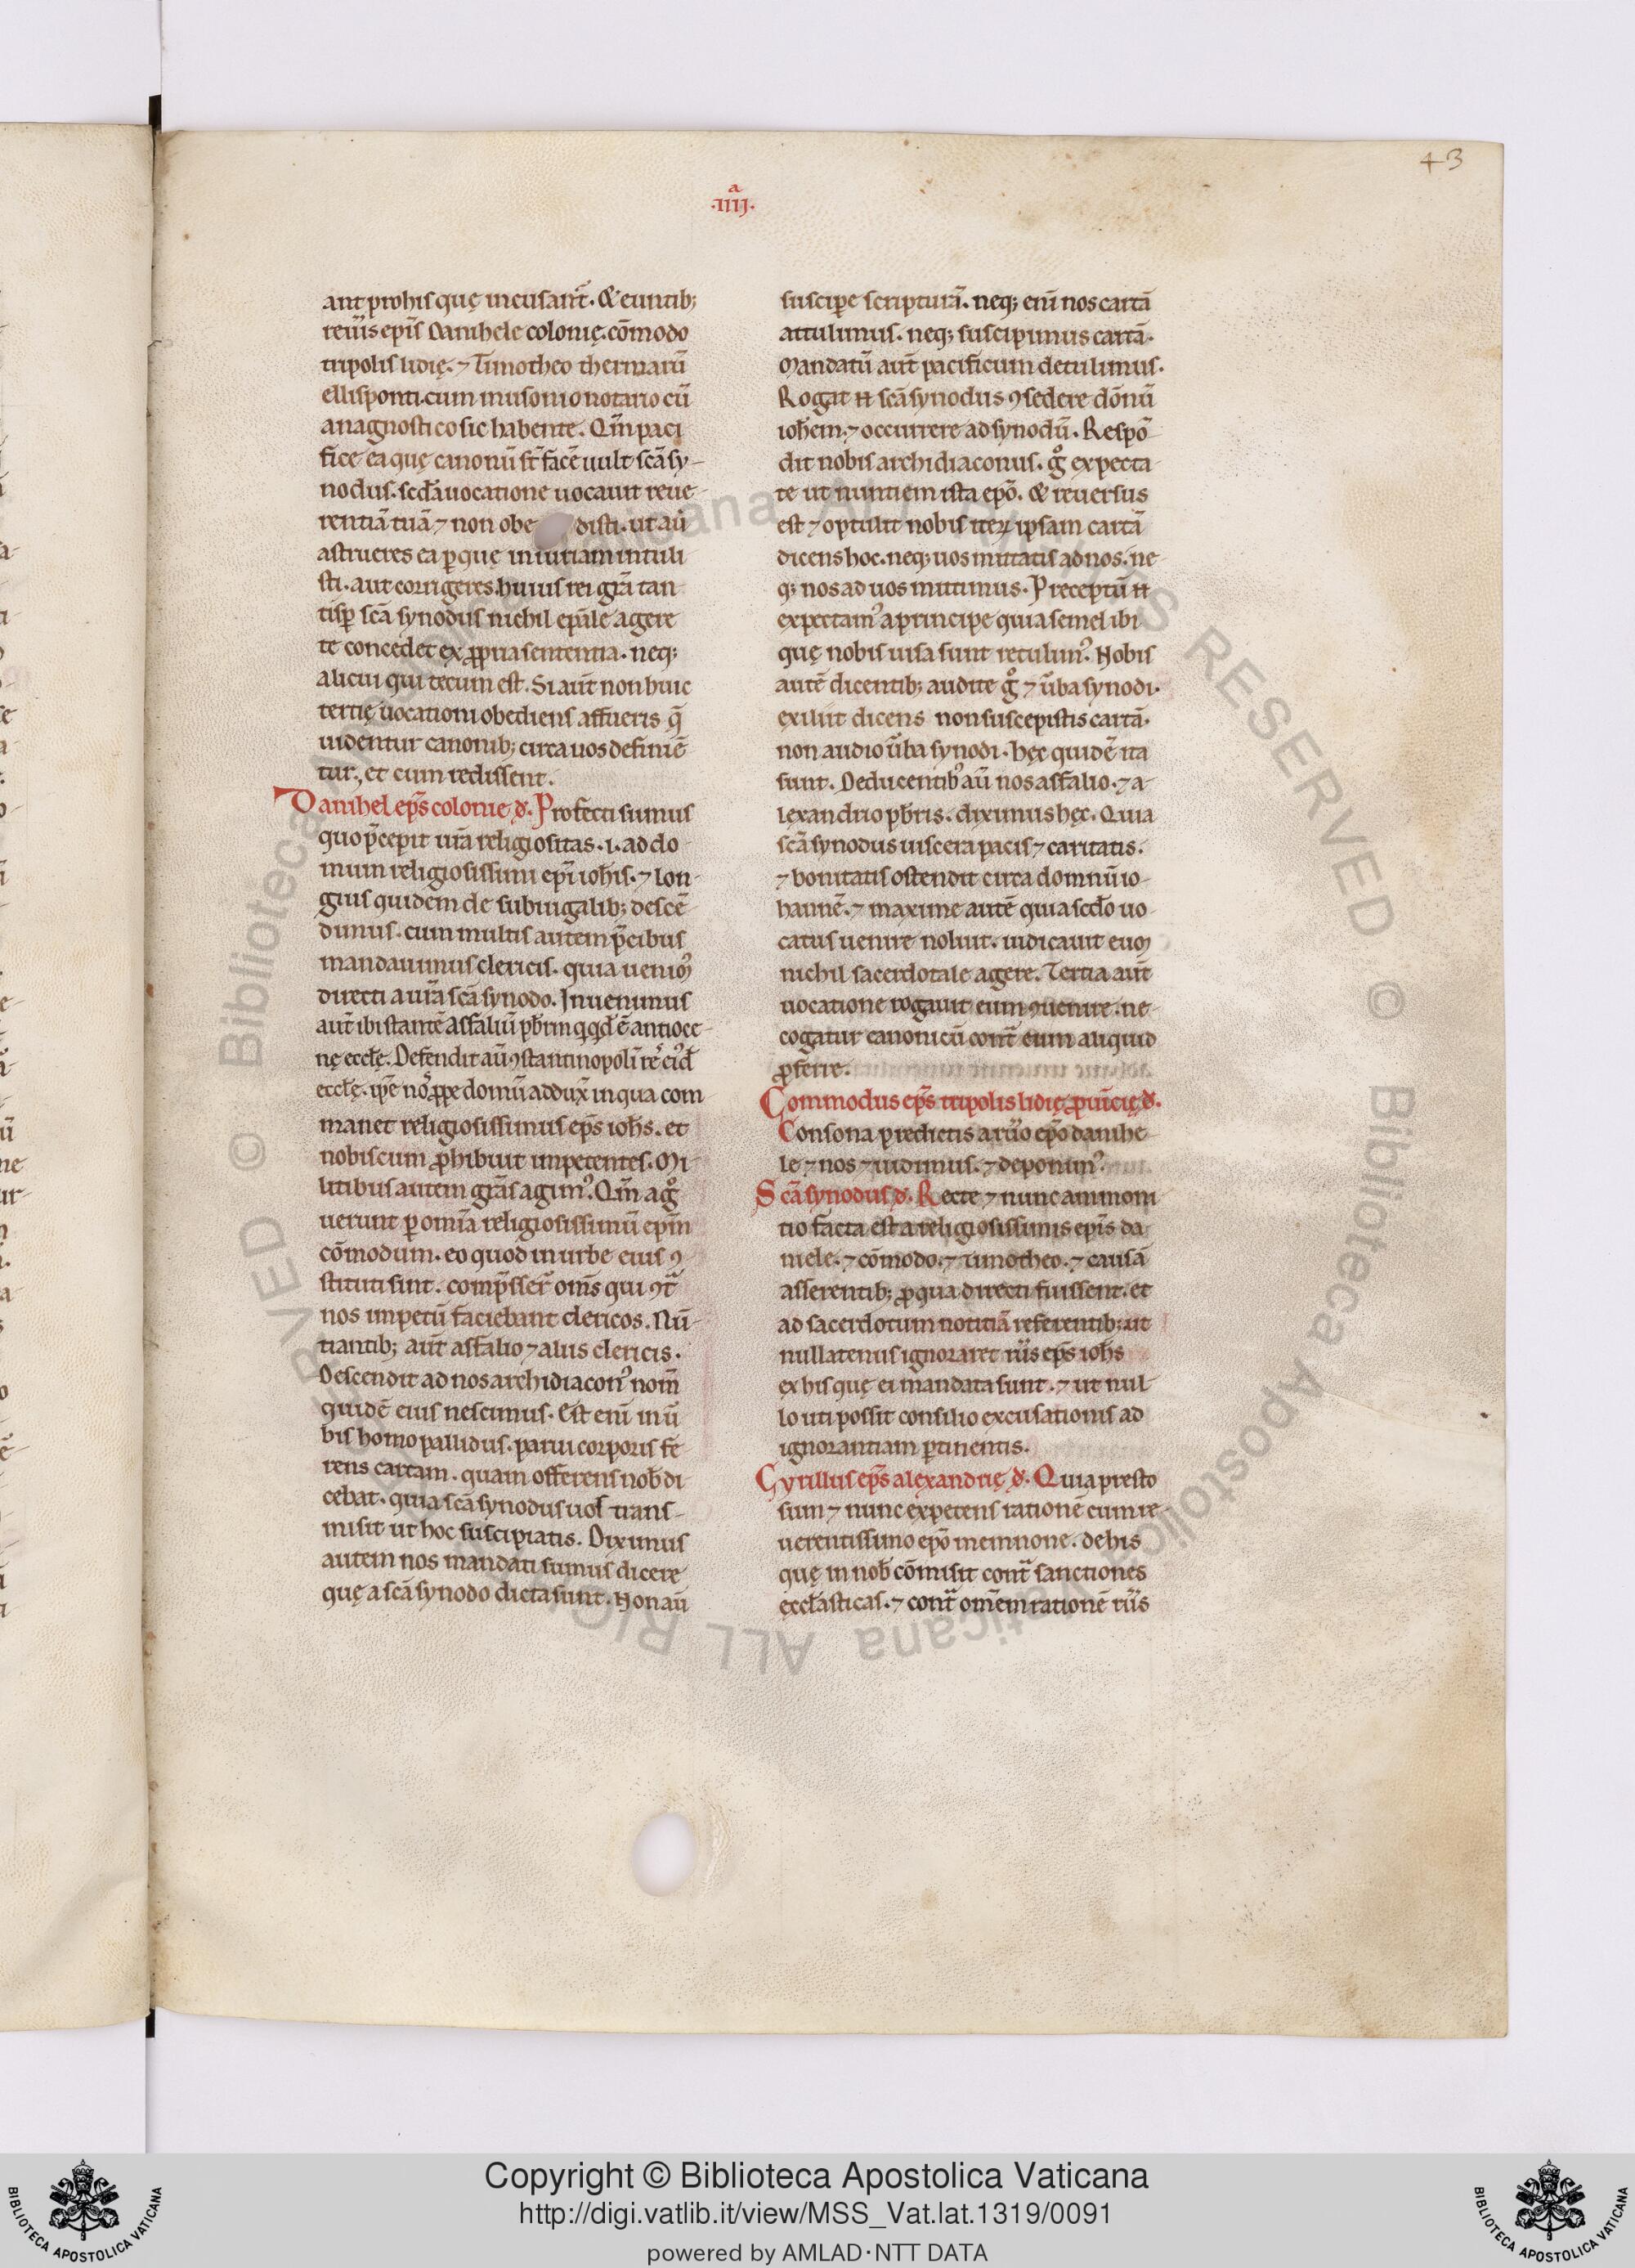 43
a
.IIII.
ant prohis quę incusant̄. & euntib;
reuīsepīs Danihele colonię. cōmodo
tripolis lidię. ⁊ Timotheo thermarū
ellisponti. cum musonio notario cū
anagnostico sic habente. Qm̄ paci
fice ea quę canonū st̄ facē uult scā sy-
nodus. scđa uocatione uocauit reue-
rentiā tuā ⁊ non obe disti. ut aū
astrueres ea ꝑ quę iniuriam intuli
sti. aut corrigeres. huius rei grā tan
tisꝑ scā synodus nichil epāle agere
te concedet ex ꝓpria sententia. neq;
alicui qui tecum est. Si aūt non huic
tertię uocationi obediens affueris q̄
uidentur canonib; circa uos definiē
tur., et cum redissent.
Danihel ep̄s colonie đ. Profecti sumus
quo p̄cepit ur̄a religiositas. i. ad do
mum religiosissimi epī ioh̄is. ⁊ lon-
gius quidem de subiugalib; descē
dimus. cum multis autem p̄cibus
mandauimus clericis. quia uenimꝰ
directi a ur̄a scā synodo. Inuenimus
aūt ibi stantē asfaliū pb̄rm q̄ qđ ē antioce-
nę eccłę. Defendit aū ꝯstantinopoli
eccłę. ip̄e noˢ ꝓpe domū addux̄ in qua com
manet religiosissimus ep̄s ioh̄s. et
nobiscum ꝓhibuit impetentes. Mi-
litibus autem grās agimꝰ. Qm̄ a
uerunt ꝑ omīa religiosissimū epm̄
cōmodum. eo quod in urbe eius ꝯ
stituti sint. comp̄sser̄ om̄s qui ꝯt̄
nos impetū faciebant clericos. Nū-
tiantib; aūt asfalio ⁊ aliis clericis.
Descendit ad nos archidiaconꝰ nom̄
quidē eius nescimus. Est enī in ū
bis homo pallidus. parui corporis fe
rens cartam. quam offerens nob̄ di
cebat. quia scā synodus uos trans-
misit ut hoc suscipiatis. Diximus
autem nos mandati sumus dicere
quę a scā synodo dicta sunt. Non aū
suscipe scripturā. neq; enī nos cartā
attulimus. neq; suscipimus cartā.
Mandatū aūt pacificum detulimus.
Rogat n̄ scā synodus ꝯsedere dōnū
ioh̄em. ⁊ occurrere ad synodū. Respō
dit nobis archidiaconus. gͦ expecta
te ut nuntiem ista epō. & reuersus
est ⁊ optulit nobis iteꝝ ipsam cartā
dicens hoc. neq; uos mittatis ad nos. ne-
q; nos ad uos mittimus. Preceptū n̄
expectamꝰ a principe quia semel ibi
quę nobis uisa sunt retulimꝰ. Nobis
autē dicentib; audite gͦ ⁊ ūba synodi.
exiliit dicens non suscepistis cartā.
non audio ūba synodi. hęc quidē ita
sunt. Deducentibꝰ aū nos asfalio. ⁊ a-
lexandrio pb̄ris. diximus hęc. Quia
scā synodus uiscera pacis ⁊ caritatis.
⁊ bonitatis ostendit circa domnū io-
hannē. ⁊ maxime autē quia scđo uo
catus uenire noluit. iudicauit eum
nichil sacerdotale agere. Tertia aūt
uocatione rogauit eum ꝯuenire. ne-
cogatur canonicū cont̄ eum aliquid
ꝓferre.
Commodus ep̄s tripolis lidię ꝓuīcię đ.
Consona predictis a rūo epō danihe
le ⁊ nos ⁊ uidimus. ⁊ deponimꝰ.
Scā synodus đ. Recte ⁊ nunc ammoni
tio facta est a religiosissimis epīs da-
niele. ⁊ cōmodo. ⁊ timotheo. ⁊ causā
asserentib; ꝓ qua directi fuissent. et
ad sacerdotum notitiā referentib; ut
nullatenus ignoraret rūs ep̄s ioh̄s
ex his quę ei mandata sunt. ⁊ ut nul-
lo uti possit consilio excusationis ad
ignorantiam ꝑtinentis.
Cyrillus ep̄s alexandrię đ. Quia presto
sum ⁊ nunc expetens rationē cum re-
uerentissimo epō memnone. de his
quę in nob̄ cōmisit cont̄ sanctiones
ęccłasticas. ⁊ cont̄ omēm rationē rūs
Copyright © Biblioteca Apostolica Vaticana
http://digi.vatlib.it/view/MSS_Vat.lat.1319/0091
powered by AMLAD·NTT DATA
BIBLIOTECA APOSTOLICA VATICANA
BIBLIOTECA APOSTOLICA VATICANA